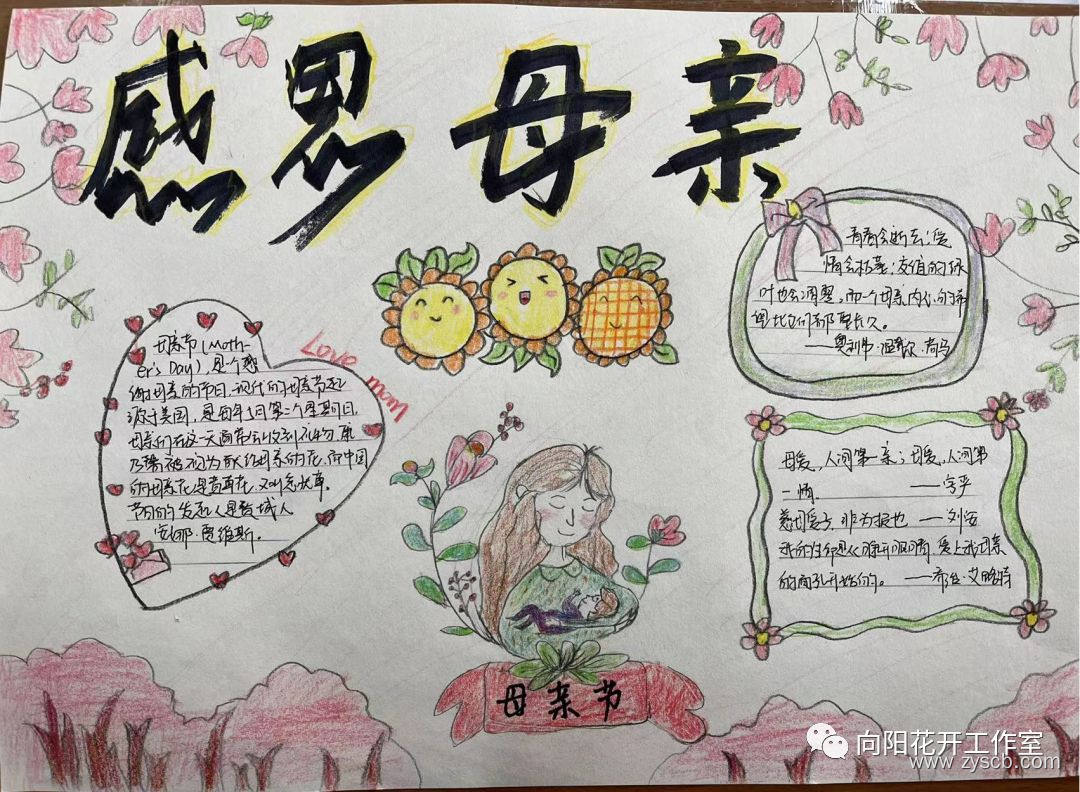 感恩母亲
Love mom
母亲节(Moth-
er's Day),是个感
谢母亲的节日,现代的母亲节起
源于美国,是每年5月第二个星期日,
母亲们在这一天通常会收到礼物,康
乃馨被视为献给母亲的花,而中国
的母亲花是萱草花,又叫忘忧草。
节日的发起人是费城人
安娜·贾维斯。
青春会逝去;爱
情会枯萎;友谊的绿
叶也会凋零,而一个母亲内心的希
望比它们都要长久。
——奥利弗·温戴尔·荷马
母爱,人间第一亲;母爱,人间第
一情。 ——字严
慈母爱子,非为报也 ——刘安
我的生命是从睁开眼睛,爱上我母亲
的面孔开始的。 ——乔治·艾略特
母亲节
向阳花开工作室
www.zyscb.com